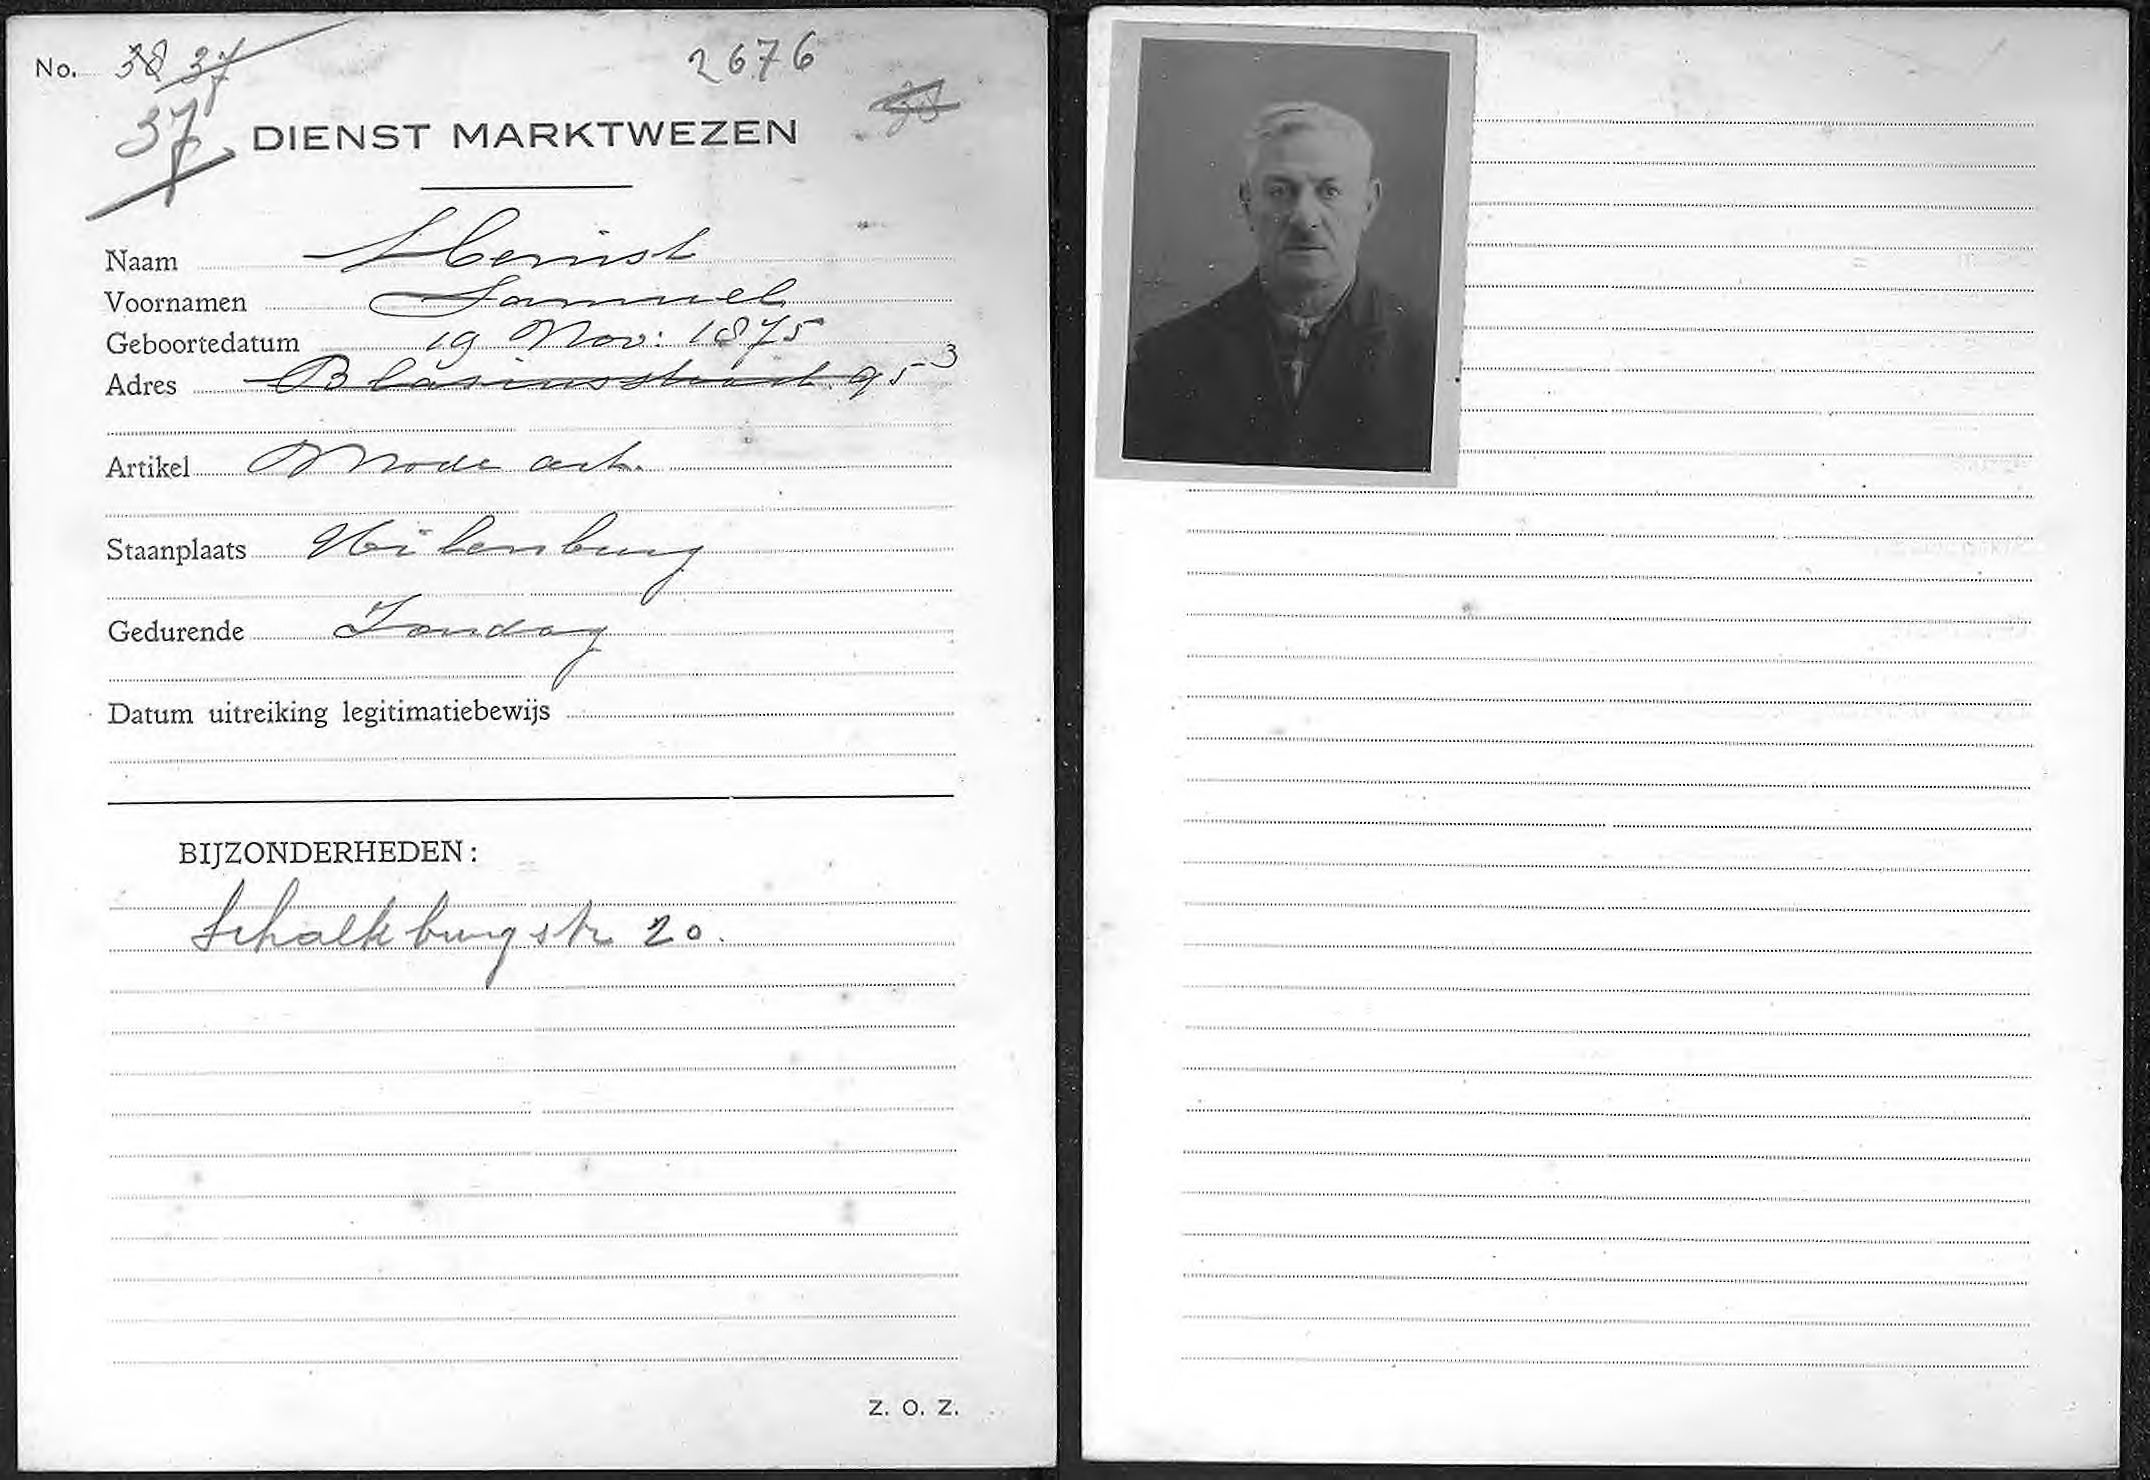 No. 38 37 2676
37
DIENST MARKTWEZEN
Naam
Voornamen Samuel
Geboortedatum 19 Nov: 1875
Adres Blasiusstraat 95 3
Artikel Mode art.
Staanplaats Uilenburg
Gedurende Zondag
Datum uitreiking legitimatiebewijs
BIJZONDERHEDEN:
Schalkburgstr 20.
Z. O. Z.